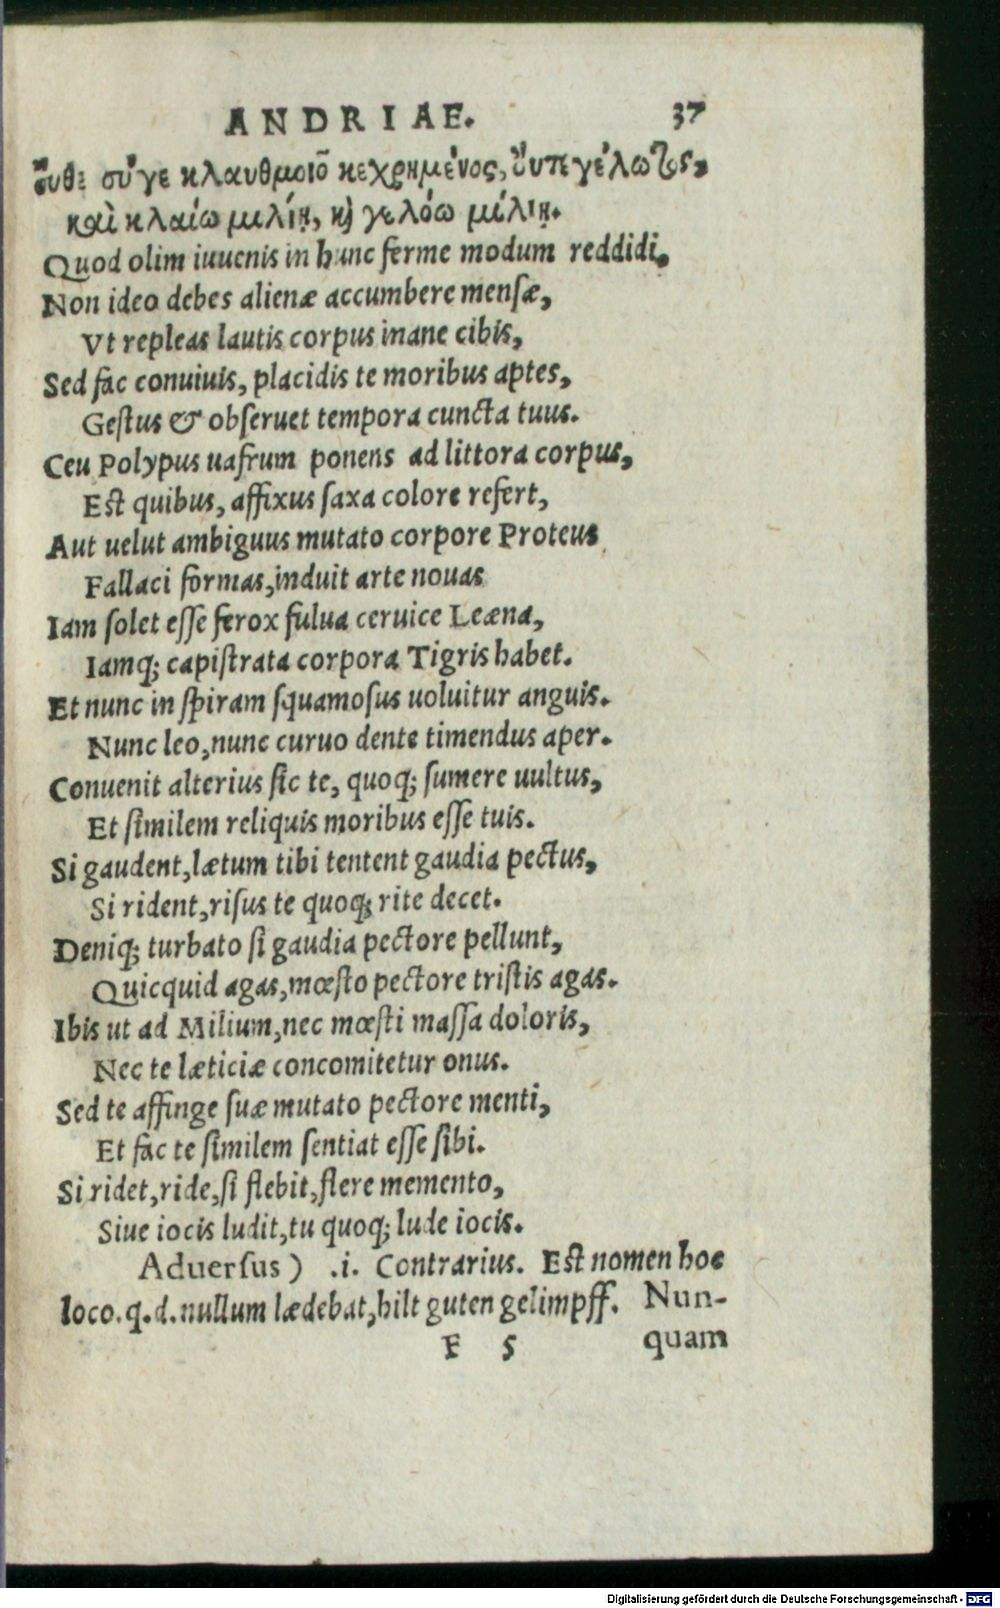 ANDRIAE. 37
σύγε κλαυθμοιο κεχρημένος,
καὶ κλαίω μιλίῃ, κὶ γελόω μίλιῃ.
Quod olim iuuenis in hunc ferme modum reddidi.
Non ideo debes alienæ accumbere menſæ,
Vt repleas lautis corpus inane cibis,
Sed fac conuiuis, placidis te moribus aptes,
Geſtus & obſeruet tempora cuncta tuus.
Ceu Polypus uafrum ponens ad littora corpus,
Eſt quibus, affixus ſaxa colore refert,
Aut uelut ambiguus mutato corpore Proteus
Fallaci formas,induit arte nouas
Iam ſolet eſſe ferox fulua ceruice Leæna,
Iamq; capiſtrata corpora Tigris habet.
Et nunc in ſpiram ſquamoſus uoluitur anguis.
Nunc leo,nunc curuo dente timendus aper.
Conuenit alterius ſic te, quoq; ſumere uultus,
Et ſimilem reliquis moribus eſſe tuis.
Si gaudent,lætum tibi tentent gaudia pectus,
Si rident,riſus te quoq; rite decet.
Deniq; turbato ſi gaudia pectore pellunt,
Quicquid agas,mœſto pectore triſtis agas.
Ibis ut ad Milium,nec mœſti maſſa doloris,
Nec te læticiæ concomitetur onus.
Sed te affinge ſuæ mutato pectore menti,
Et fac te ſimilem ſentiat eſſe ſibi.
Si ridet,ride,ſi flebit,flere memento,
Siue iocis ludit,tu quoq; lude iocis.
Aduerſus) .i. Contrarius. Eſt nomen hoc
loco.q.d.nullum lædebat,hilt guten gelimpff. Nun-
F 5 quam
Digitalisierung gefördert durch die Deutsche Forschungsgemeinschaft - DFG